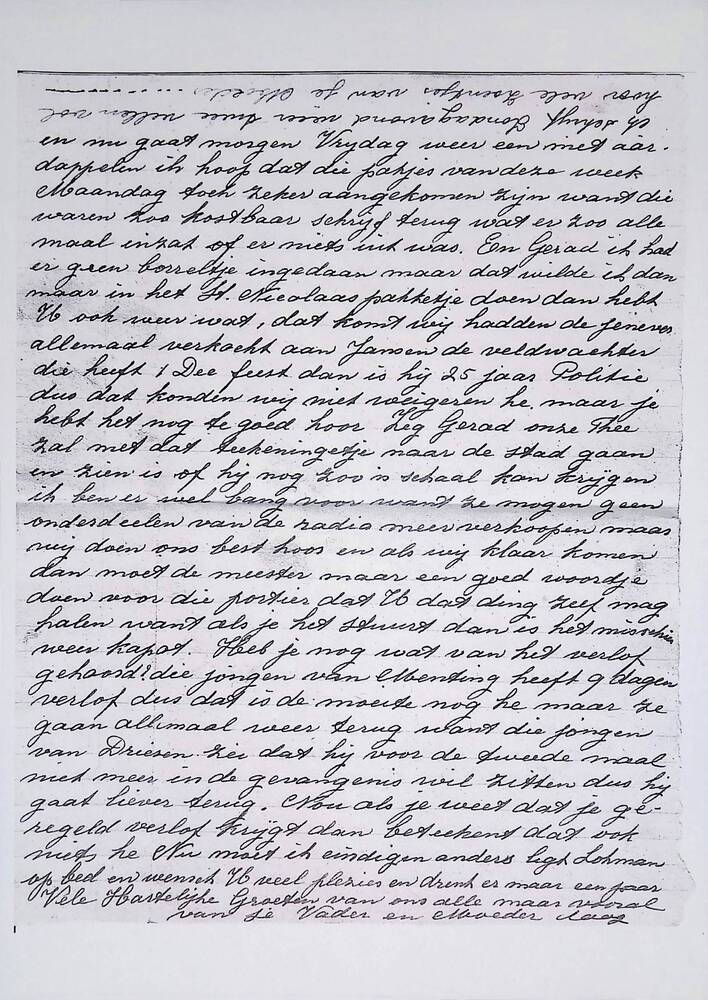 en nu gaat morgen Vrijdag weer een met aar-
dappelen ik hoop dat die pakjes van deze week
Maandag toch zeker aangekomen zijn want die
waren zoo kostbaar schrijf terug wat er zoo alle
maal inzat of er niets uit was. En Gerad ik had
er geen borreltje ingedaan maar dat wilde ik dan
maar in het St. Nicolaas pakketje doen dan hebt
U ook weer wat, dat komt wij hadden de jenever
allemaal verkocht aan Jansen de veldwachter
die heeft 1 Dec feest dan is hij 25 jaar Politie
dus dat konden wij niet weigeren he. maar je
hebt het nog te goed hoor Zeg Gerad onze Thee
zal met dat teekeningetje naar de stad gaan
en zien is of hij nog zoo'n schaal kan krijgen
ik ben er wel bang voor want ze mogen geen
onderdeelen van de radio meer verkoopen maar
wij doen ons best hoor en als wij klaar komen
dan moet de meester maar een goed woordje
doen voor die portier dat U dat ding zelf mag
halen want als je het stuurt dan is het misschien
weer kapot. Heb je nog wat van het verlof
gehoord? die jongen van Menting heeft 9 dagen
verlof dus dat is de moeite nog he maar ze
gaan allemaal weer terug want die jongen
van Driesen zei dat hij voor de tweede maal
niet meer in de gevangenis wil zitten dus hij
gaat liever terug. Nou als je weet dat je ge-
regeld verlof krijgt dan beteekent dat ook
niets he Nu moet ik eindigen anders ligt Lohman
op bed en wensch U veel plezier en drink er maar een paar
Vele Hartelijke Groeten van ons alle maar vooral
van je Vader en Moeder daag
ik schrijf Zondagavond weer twee vellen vol
hoor vele Zoentjes van je Moeder